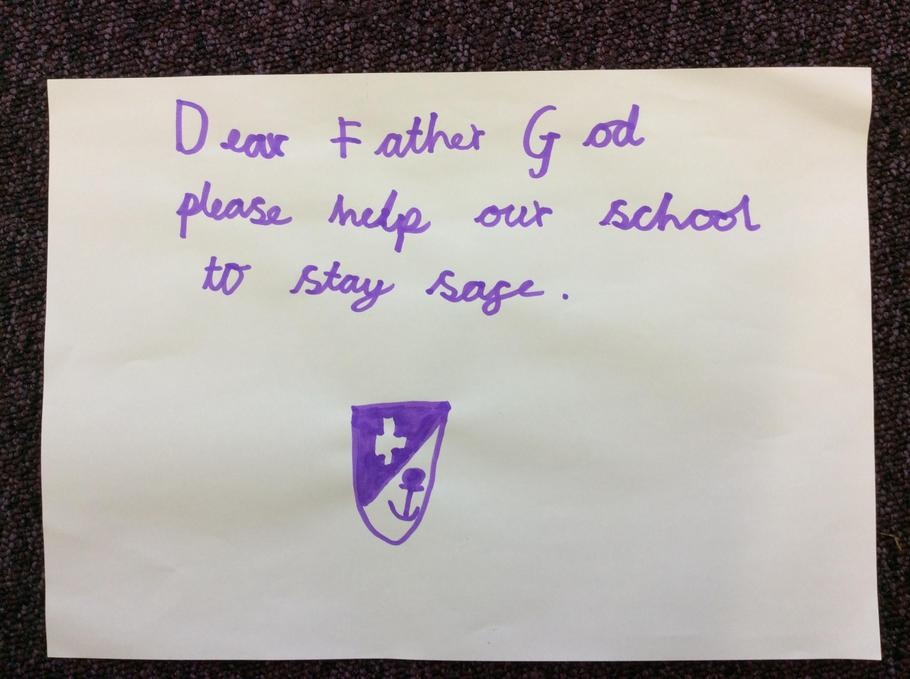 Dear Father God
please help our school
to stay safe.